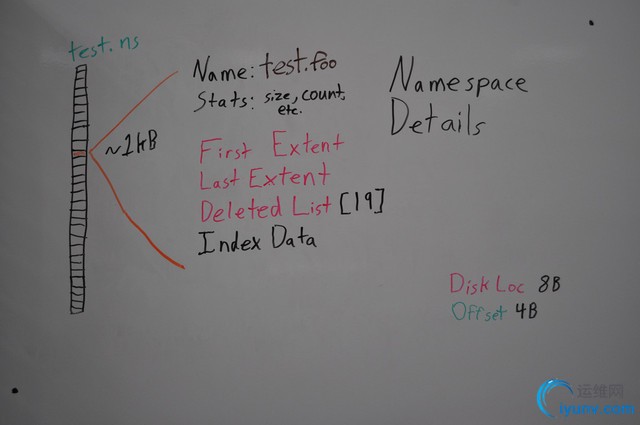 test.ns
~1kB
Name: test.foo
Stats: size, count,
etc.
First Extent
Last Extent
Deleted List [19]
Index Data
Namespace
Details
DiskLoc 8B
Offset 4B
运维网
iyunv.com